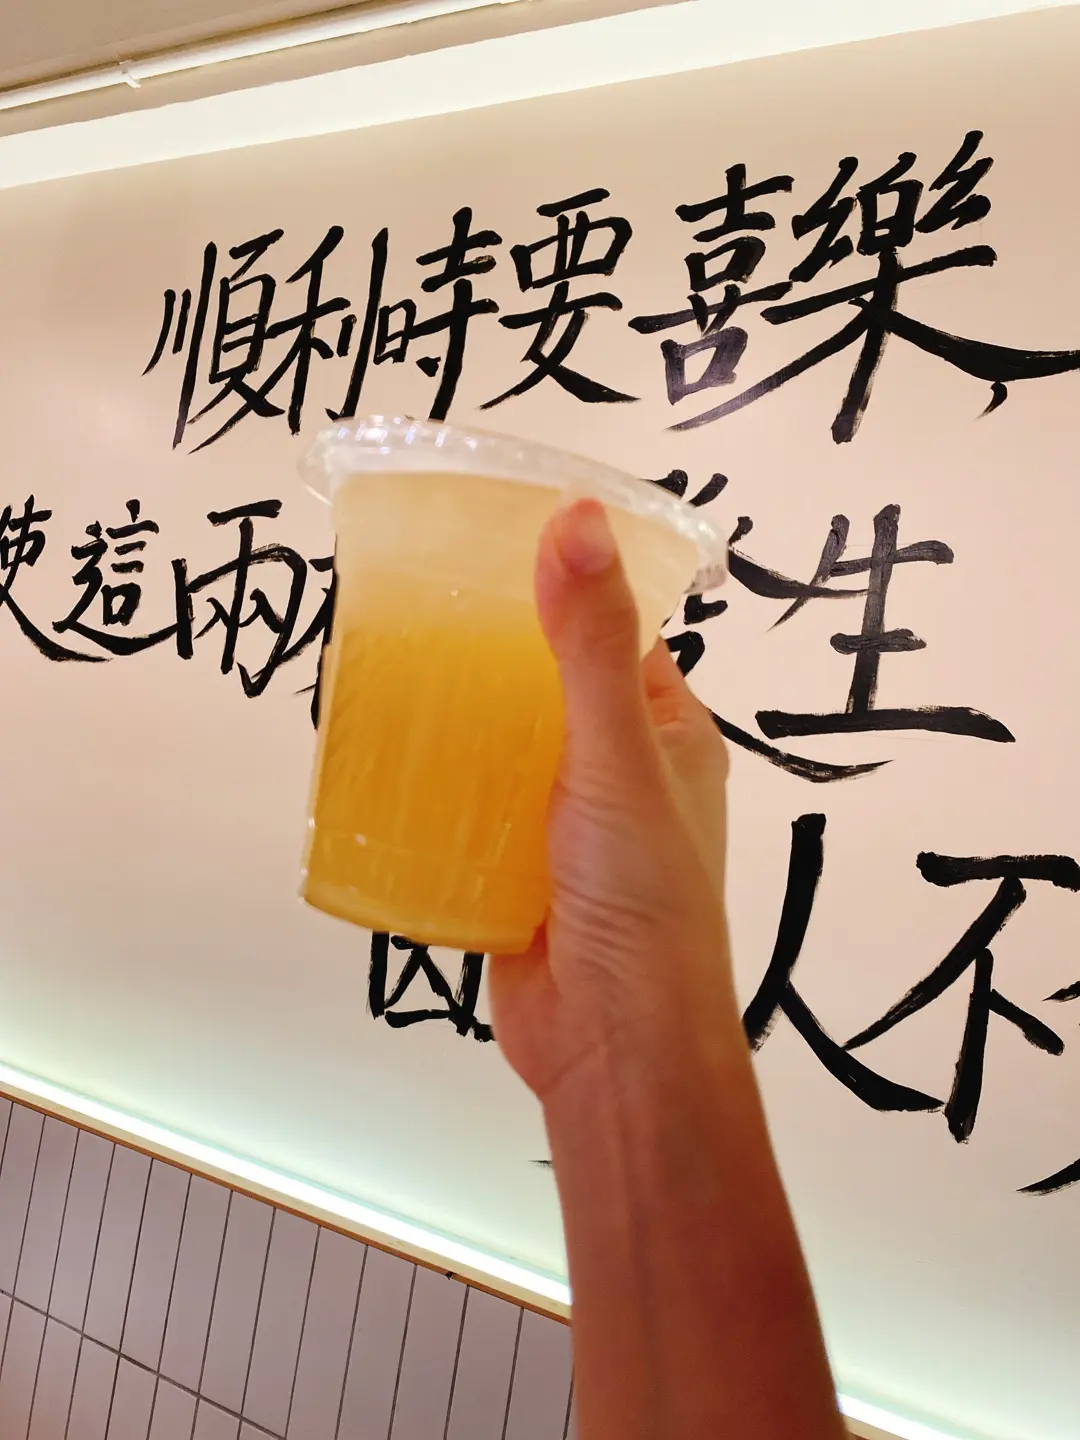 順利時要喜樂，
使這兩 發生
因 人不